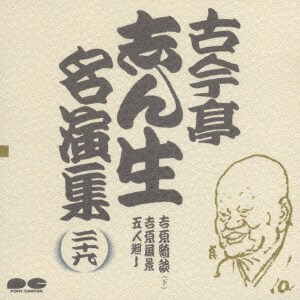 古今亭
志ん生
名演集
二十六
吉原綺談(下)
吉原風景
五人廻し
PONY CANYON